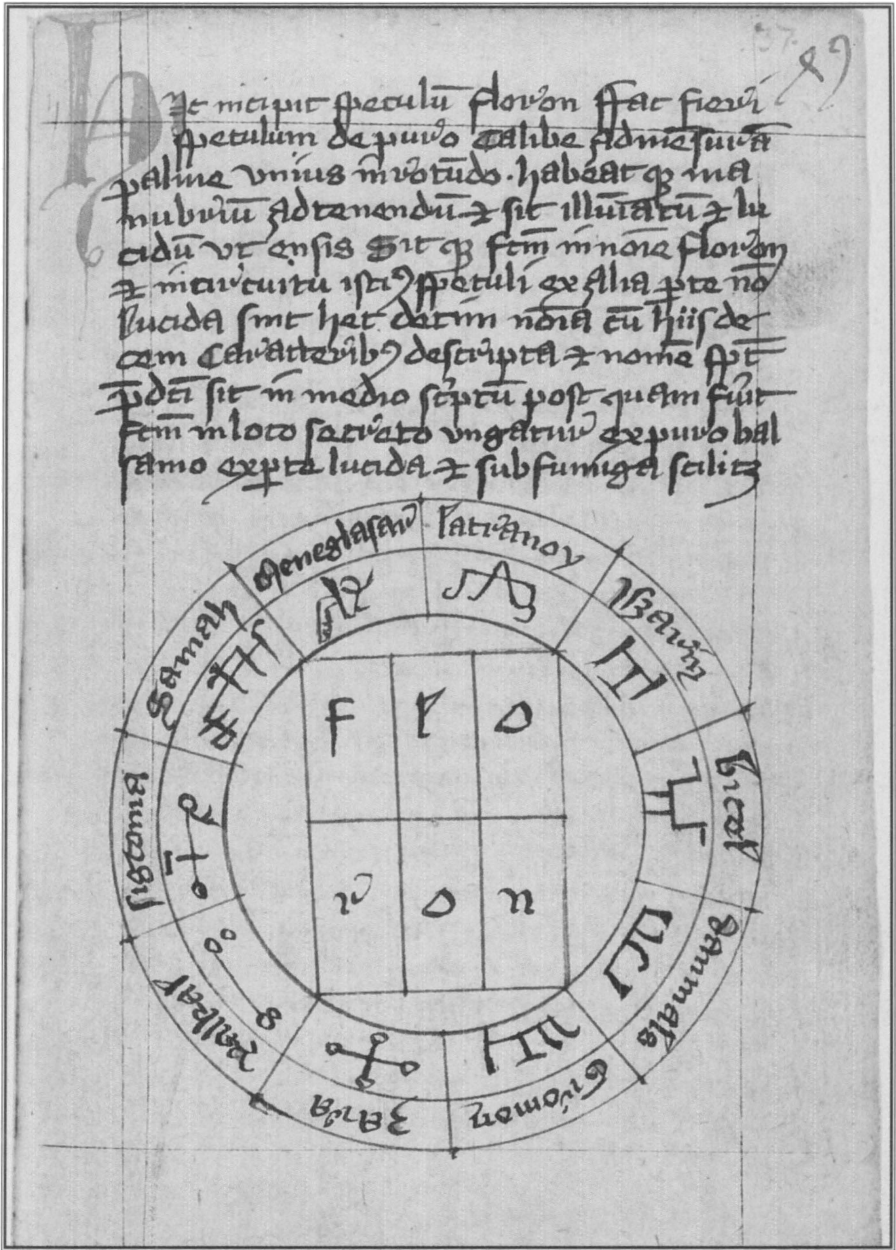 Hic incipit speculū floron ffac fieri
speculum de puro calibe ad mēsurā
palme unius in rotūdo. habeat qꝫ ma
nubriū ad tenendū ⁊ sit illuīatū ⁊ lu
cidū ut ensis Sit qꝫ fcm̄ in noīe floron
⁊ in circuitu istiꝰ speculi ex alia ꝑte nō
lucida sint hec decim noīa cū hiis de
cem caracteribꝰ descripta ⁊ nomē spc̄
p̄dcī sit in medio scͥptū post quam fūit
fcm̄ in loco secreto ungatur ex puro bal
samo ex ꝑte lucida ⁊ subfumiga scilitꝫ
latranoy
Bicol
Zara
Samah
F l o
r o n
37.